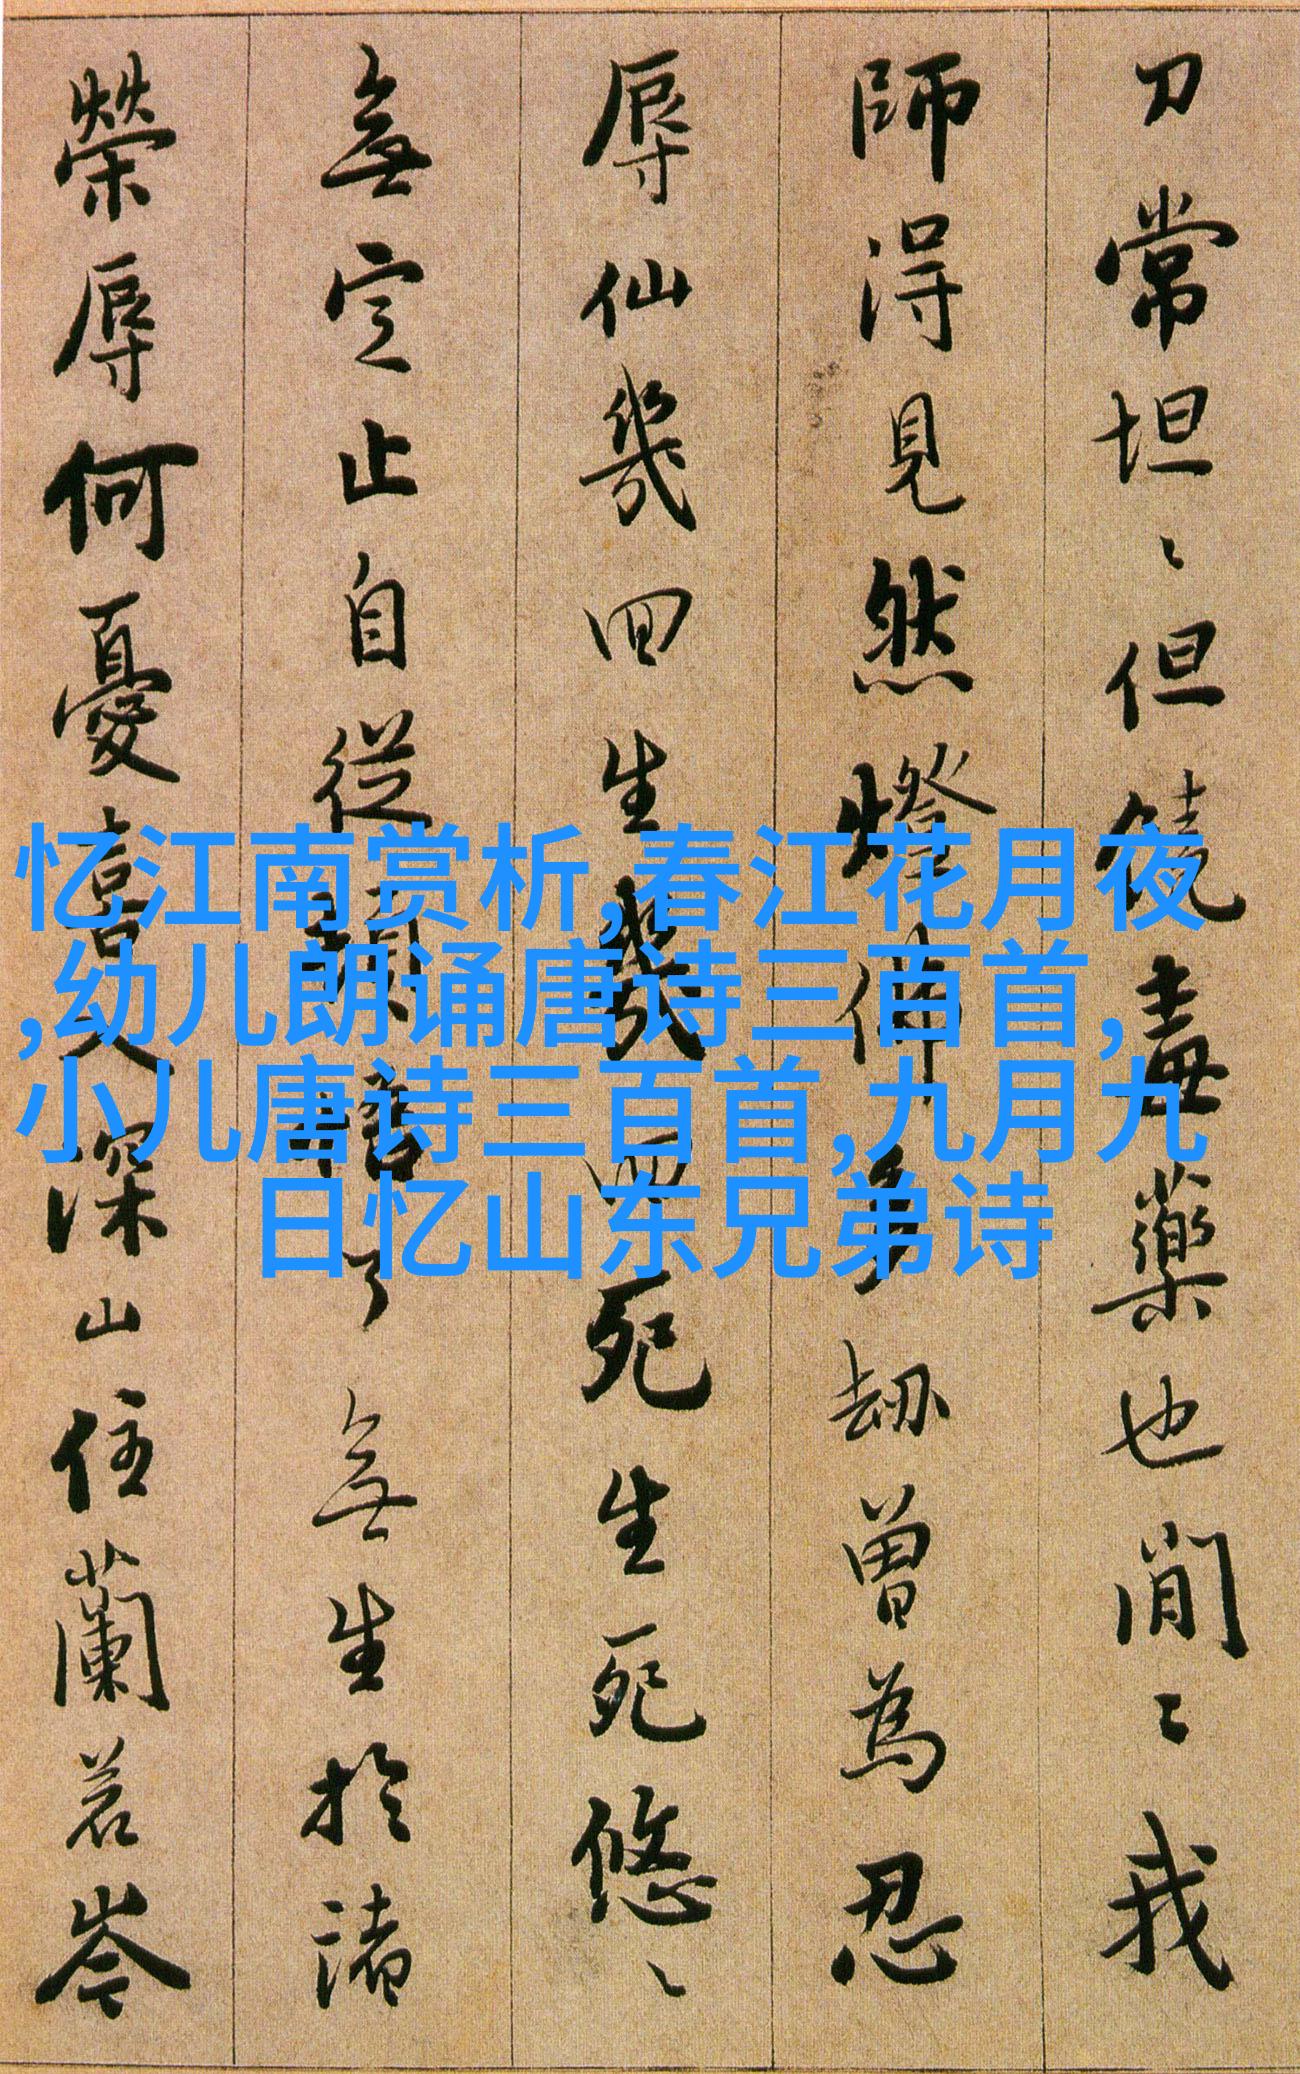 刀常坦々但饒毒藥也閒々我
師得見然燈佛多劫曾為忍
辱仙幾回生幾回死生死悠々
無定止自從頓悟了無生於諸
榮辱何憂喜入深山住蘭若岑
忆江南赏析,春江花月夜
,幼儿朗诵唐诗三百首,
小儿唐诗三百首,九月九
日忆山东兄弟诗